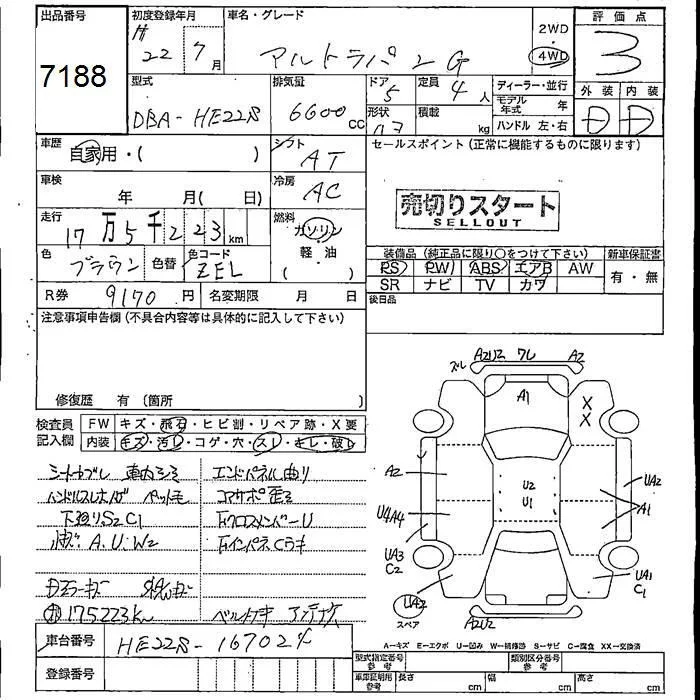 出品番号 初度登録年月 車名・グレード 2WD 評価点
7188 H 22年 7月 アルトラパン G 4WD 3
型式 排気量 ドア 5 定員 4人 ディーラー・並行 外装 内装
DBA-HE22S 6600 cc 形状 積載 kg モデル年式 年 D D
ハンドル 左・右
車歴 自家用・( ) シフト AT セールスポイント(正常に機能するものに限ります)
車検 年 月( 日) 冷房 AC
売切りスタート
SELLOUT
走行 17万5千223km 燃料 ガソリン
軽油
色 ブラウン 色替 色コード ZEL
装備品(純正品に限り○をつけて下さい) 新車保証書
PS PW ABS エアB AW 有・無
SR ナビ TV カワ
R券 9170円 名変期限 月 日 後日品
注意事項申告欄(不具合内容等は具体的に記入して下さい)
修復歴 有(箇所 )
検査員記入欄 FW キズ・飛石・ヒビ割・リペア跡・X要
内装 キズ・汚レ・コゲ・穴・スレ・キレ・破レ
シートカブレ 車内シミ エンドパネル曲り
ハンドルスレ ペット毛 コアサポ歪み
下廻りS2C1 クロスメンバーU
A.U.W2 インパネCラキ
175223km ベルト アンテナ
車台番号 HE22S-167024
登録番号
ズレ A2U2 ワレ A2
A1
X
X
A2 U2 U1 UA2
U4A4 A1
UA3 C2 UA1 C1
スペア A2U2
A-キズ E-エクボ U-凹み W-補修跡 S-サビ C-腐食 XX-交換済
型式指定番号 参考 類別区分番号 参考
車庫証明用 参考 長さ cm 幅 cm 高さ cm